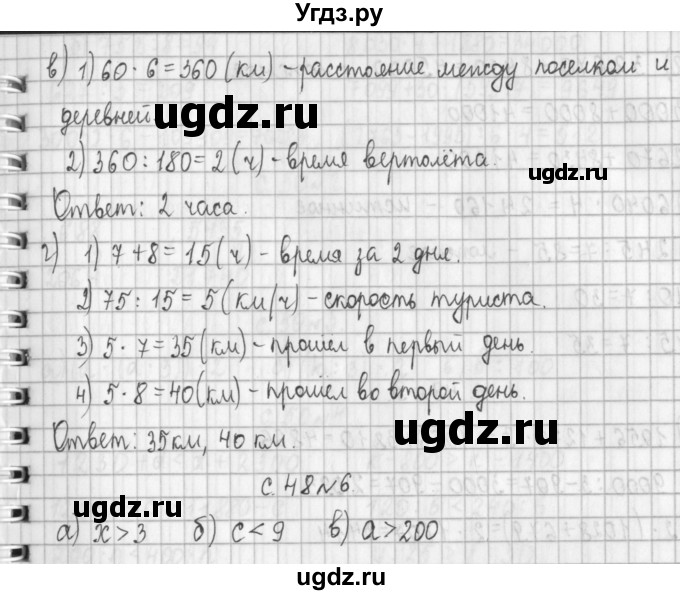 Угдз.ру
в) 1) 60 · 6 = 360 (км) - расстояние между поселком и
деревней
ugdz.ru
ugdz.ru
2) 360 : 180 = 2 (ч) - время вертолёта.
Ответ: 2 часа.
ugdz.ru
г) 1) 7 + 8 = 15 (ч) - время за 2 дня.
2) 75 : 15 = 5 (км/ч) - скорость туриста.
ugdz.ru
3) 5 · 7 = 35 (км) - прошёл в первый день.
4) 5 · 8 = 40 (км) - прошёл во второй день.
ugdz.ru
Ответ: 35 км, 40 км.
с. 48 №6
ugdz.ru
ugdz.ru
а) x > 3 б) c < 9 в) a > 200
ugdz.ru
ugdz.ru